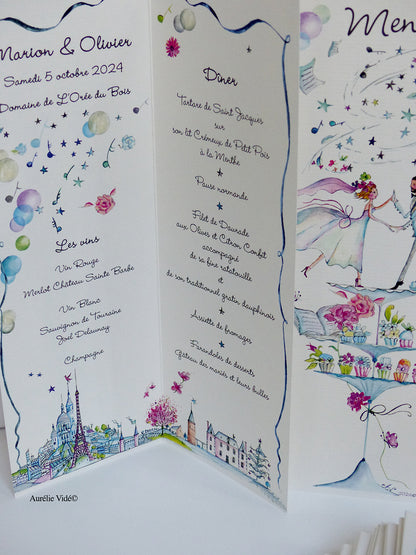 Marion & Olivier
Samedi 5 octobre 2024
Domaine de L'Orée du Bois
Les vins
Vin Rouge
Merlot Château Sainte Barbe
Vin Blanc
Sauvignon de Touraine
Joel Delaunay
Champagne
Dîner
Tartare de Saint Jacques
sur
son lit Crémeux de Petit Pois
à la Menthe
Pause normande
Filet de Daurade
aux Olives et Citron Confit
accompagné
de sa fine ratatouille
et
de son traditionnel gratin dauphinois
Assiette de fromages
Farandoles de desserts
Gâteau des mariés et leurs bulles
Men
Aurélie Vidé©